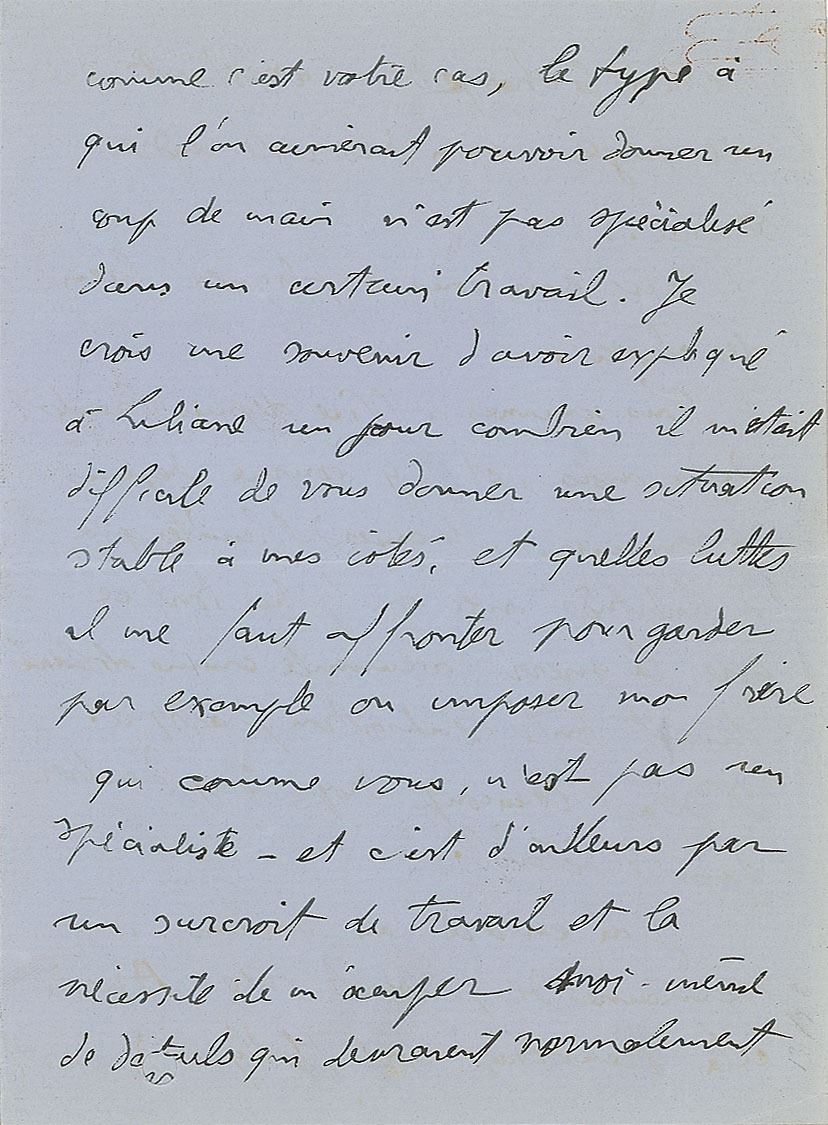 comme c'est votre cas, le type à
qui l'on aimerait pouvoir donner un
coup de main n'est pas spécialisé
dans un certain travail. Je
crois me souvenir d'avoir expliqué
à Liliane un jour combien il m'était
difficile de vous donner une situation
stable à mes côtés, et quelles luttes
il me faut affronter pour garder
par exemple ou imposer mon frère
qui comme vous, n'est pas un
spécialiste - et c'est d'ailleurs par
un surcroit de travail et la
nécessité de m'occuper moi-même
de détails qui devraient normalement